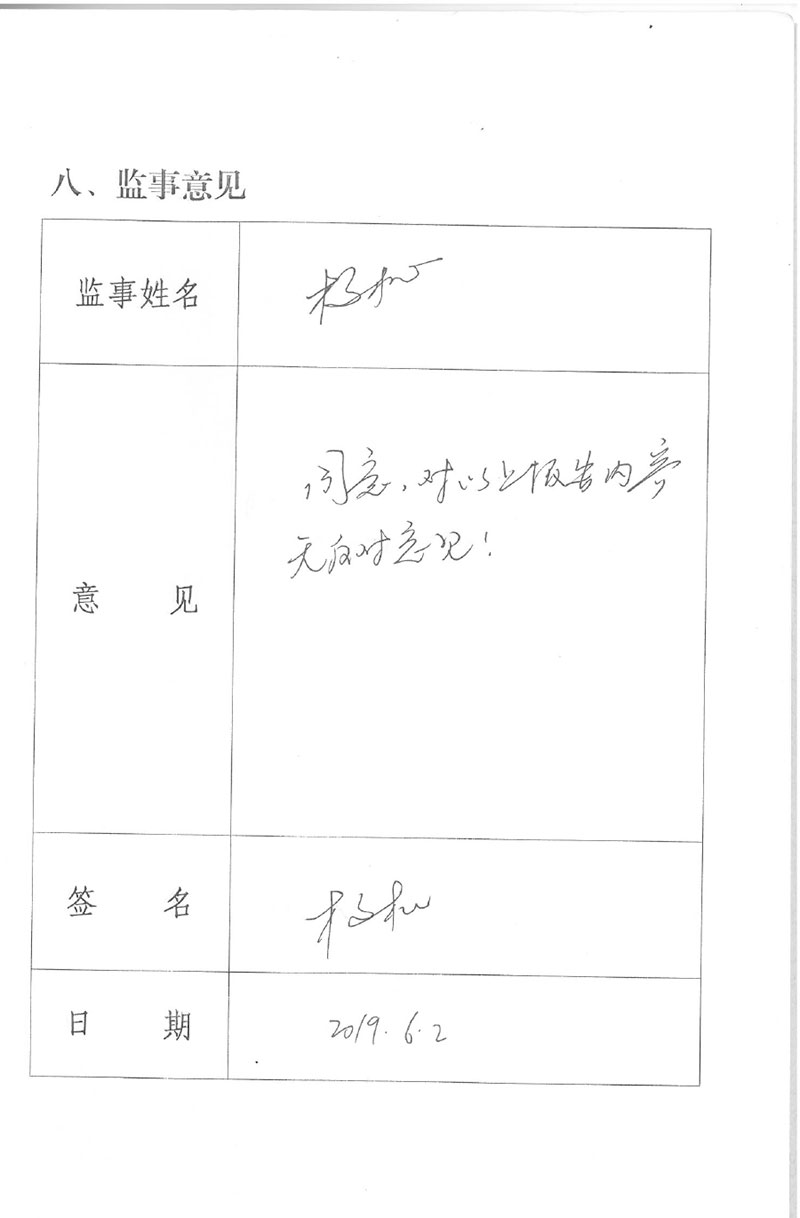 八、监事意见
监事姓名
意见
同意，对以上报告内容
无反对意见！
签名
日期 2019.6.2